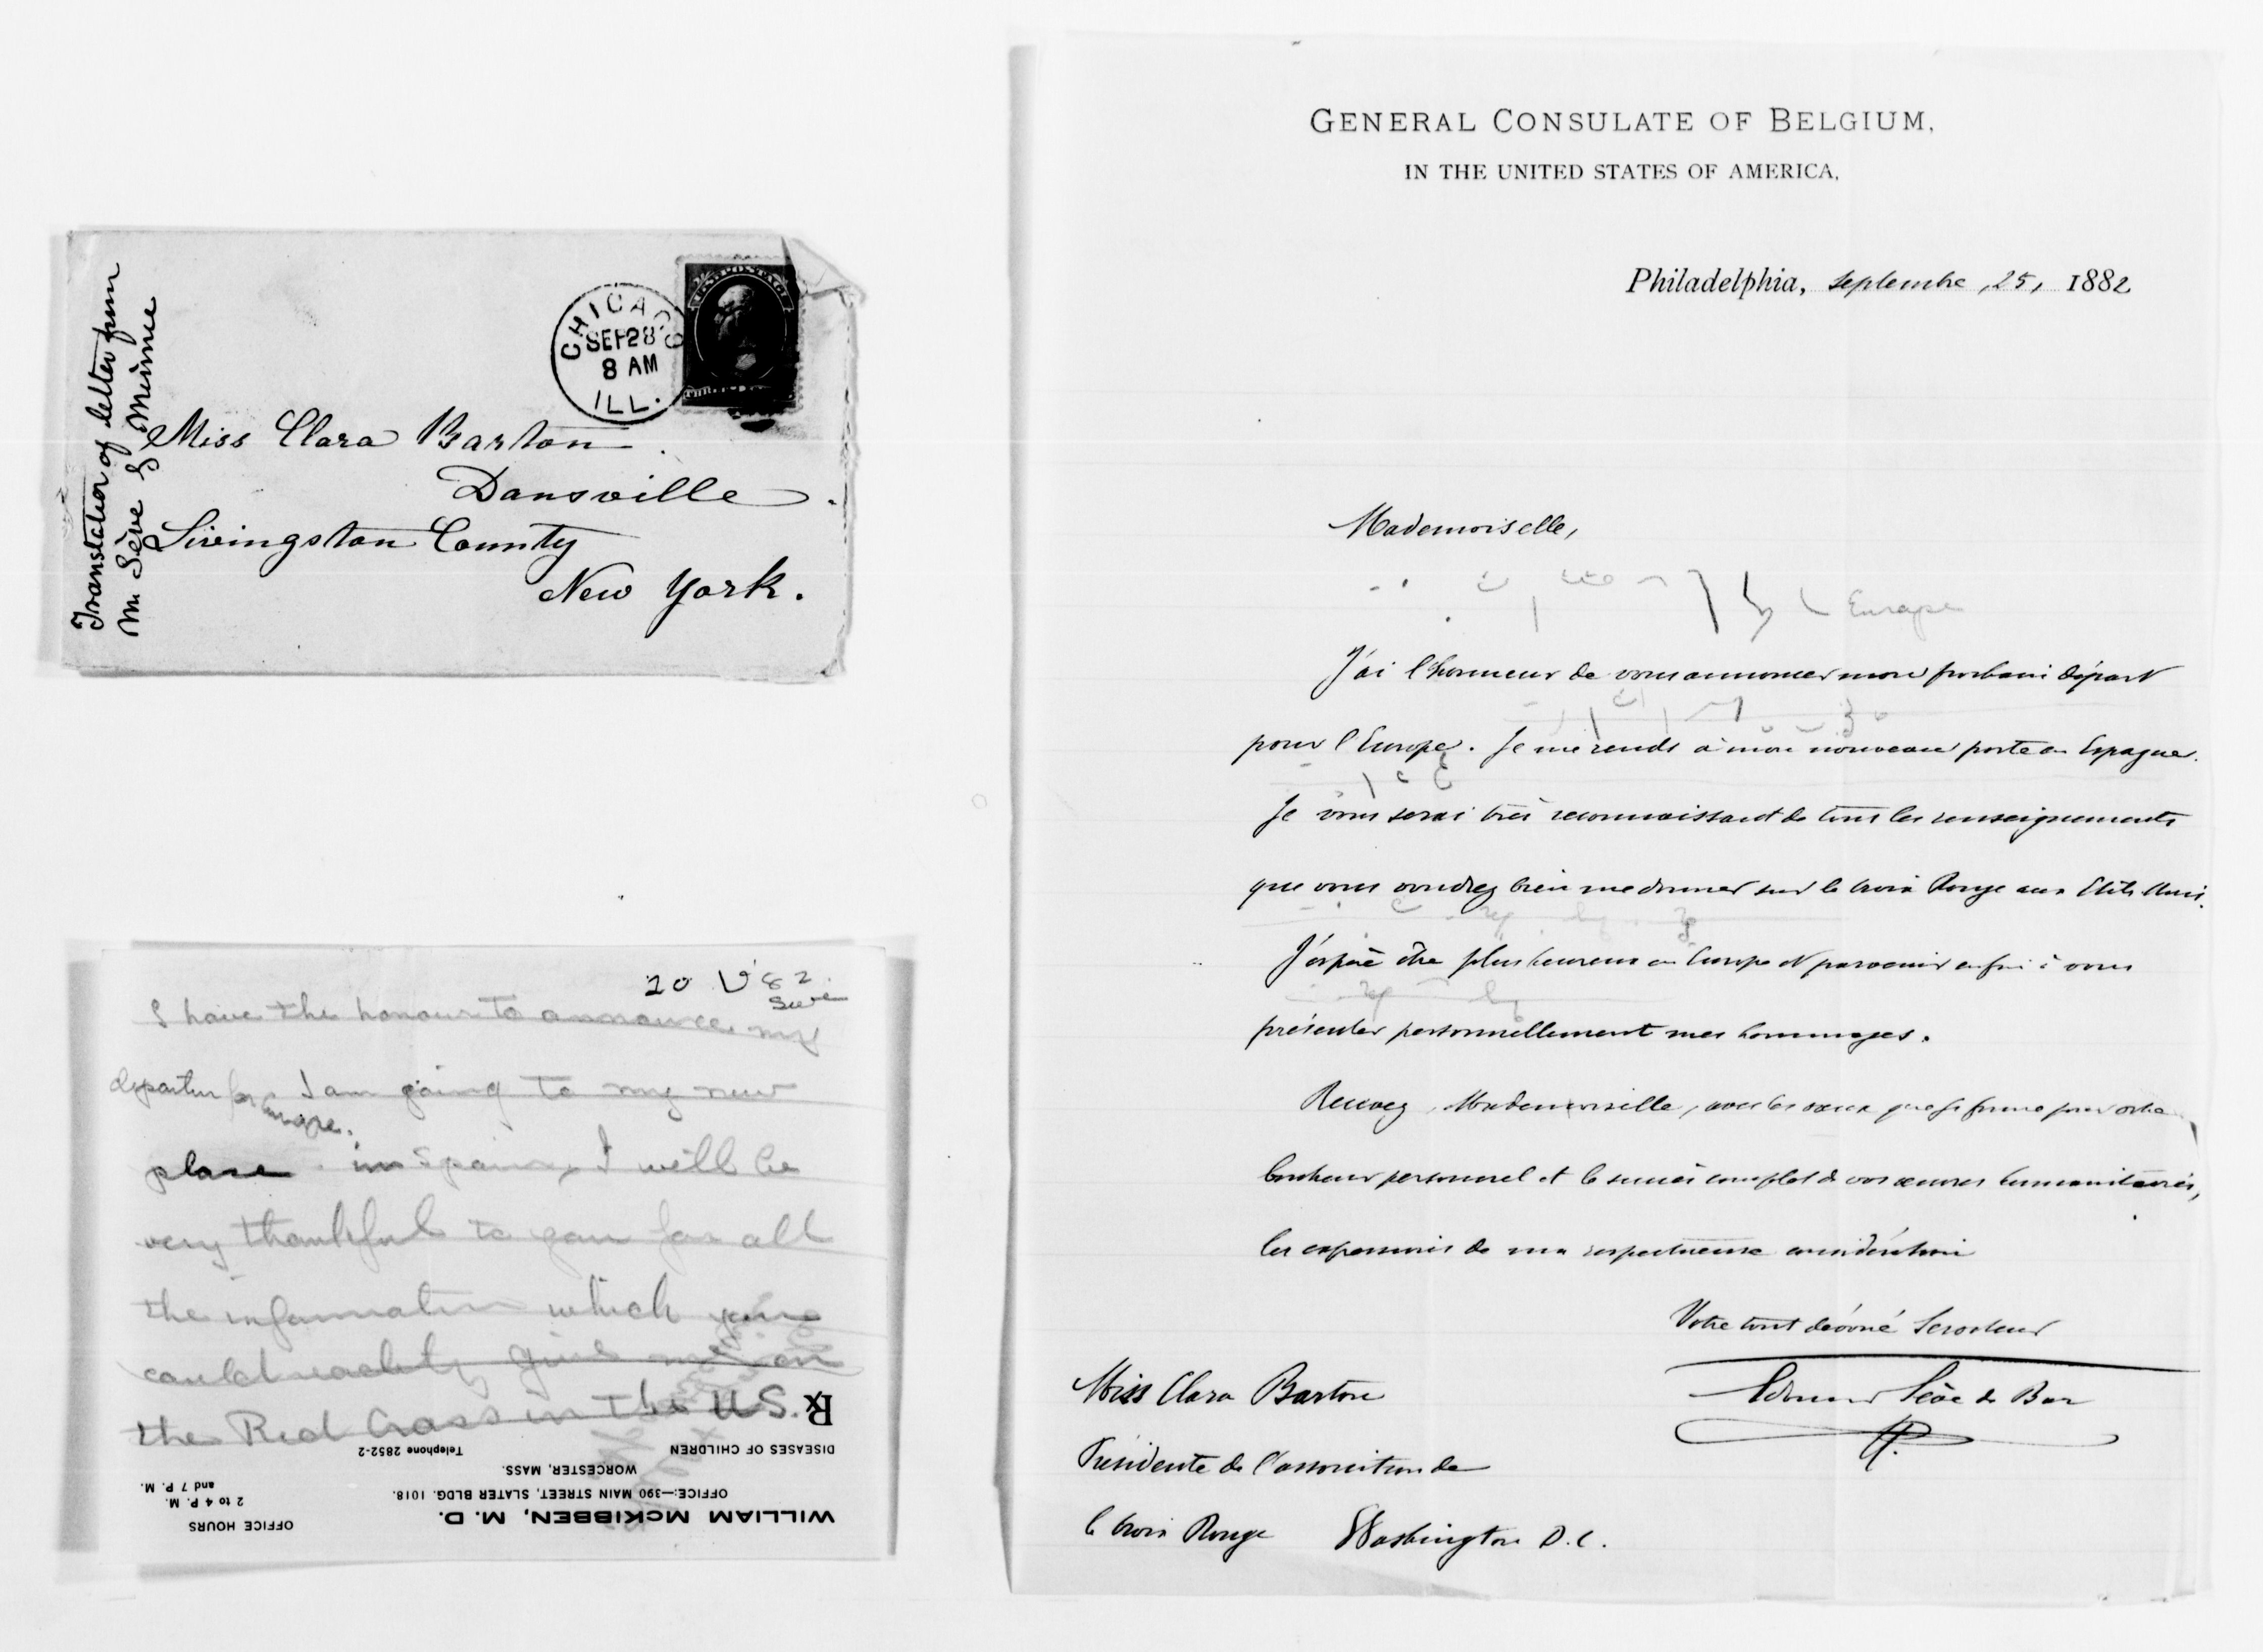 Translation of letter from
M. Sève & Minnie
CHICAGO
SEP 28
8 AM
ILL.
U.S. POSTAGE
Miss Clara Barton
Dansville.
Livingston County
New York.
20 82.
I have the honour to announce my
departure for Europe. I am going to my new
place in Spain, I will be
very thankful to you for all
the information which you
could readily give me on
the Red Cross in the U.S.
℞
DISEASES OF CHILDREN
Telephone 2852-2
WORCESTER, MASS.
OFFICE:—390 MAIN STREET, SLATER BLDG. 1018.
WILLIAM McKIBBEN, M. D.
OFFICE HOURS
2 to 4 P. M.
and 7 P. M.
GENERAL CONSULATE OF BELGIUM,
IN THE UNITED STATES OF AMERICA,
Philadelphia, septembre, 25, 1882
Mademoiselle,
Europe
J'ai l'honneur de vous annoncer mon prochain départ
pour l'Europe. Je me rends à mon nouveau poste en Espagne.
Je vous serai très reconnaissant de tous les renseignements
que vous voudrez bien me donner sur la Croix Rouge aux Etats Unis.
J'espère être plus heureux en Europe et parvenir enfin à vous
présenter personnellement mes hommages.
Recevez, Mademoiselle, avec les vœux que je forme pour votre
bonheur personnel et le succès complet de vos œuvres humanitaires,
les expressions de ma respectueuse considération
Votre tout dévoué Serviteur
Edouard Sève de Bar
Miss Clara Barton
Présidente de l'association de
la Croix Rouge Washington D.C.